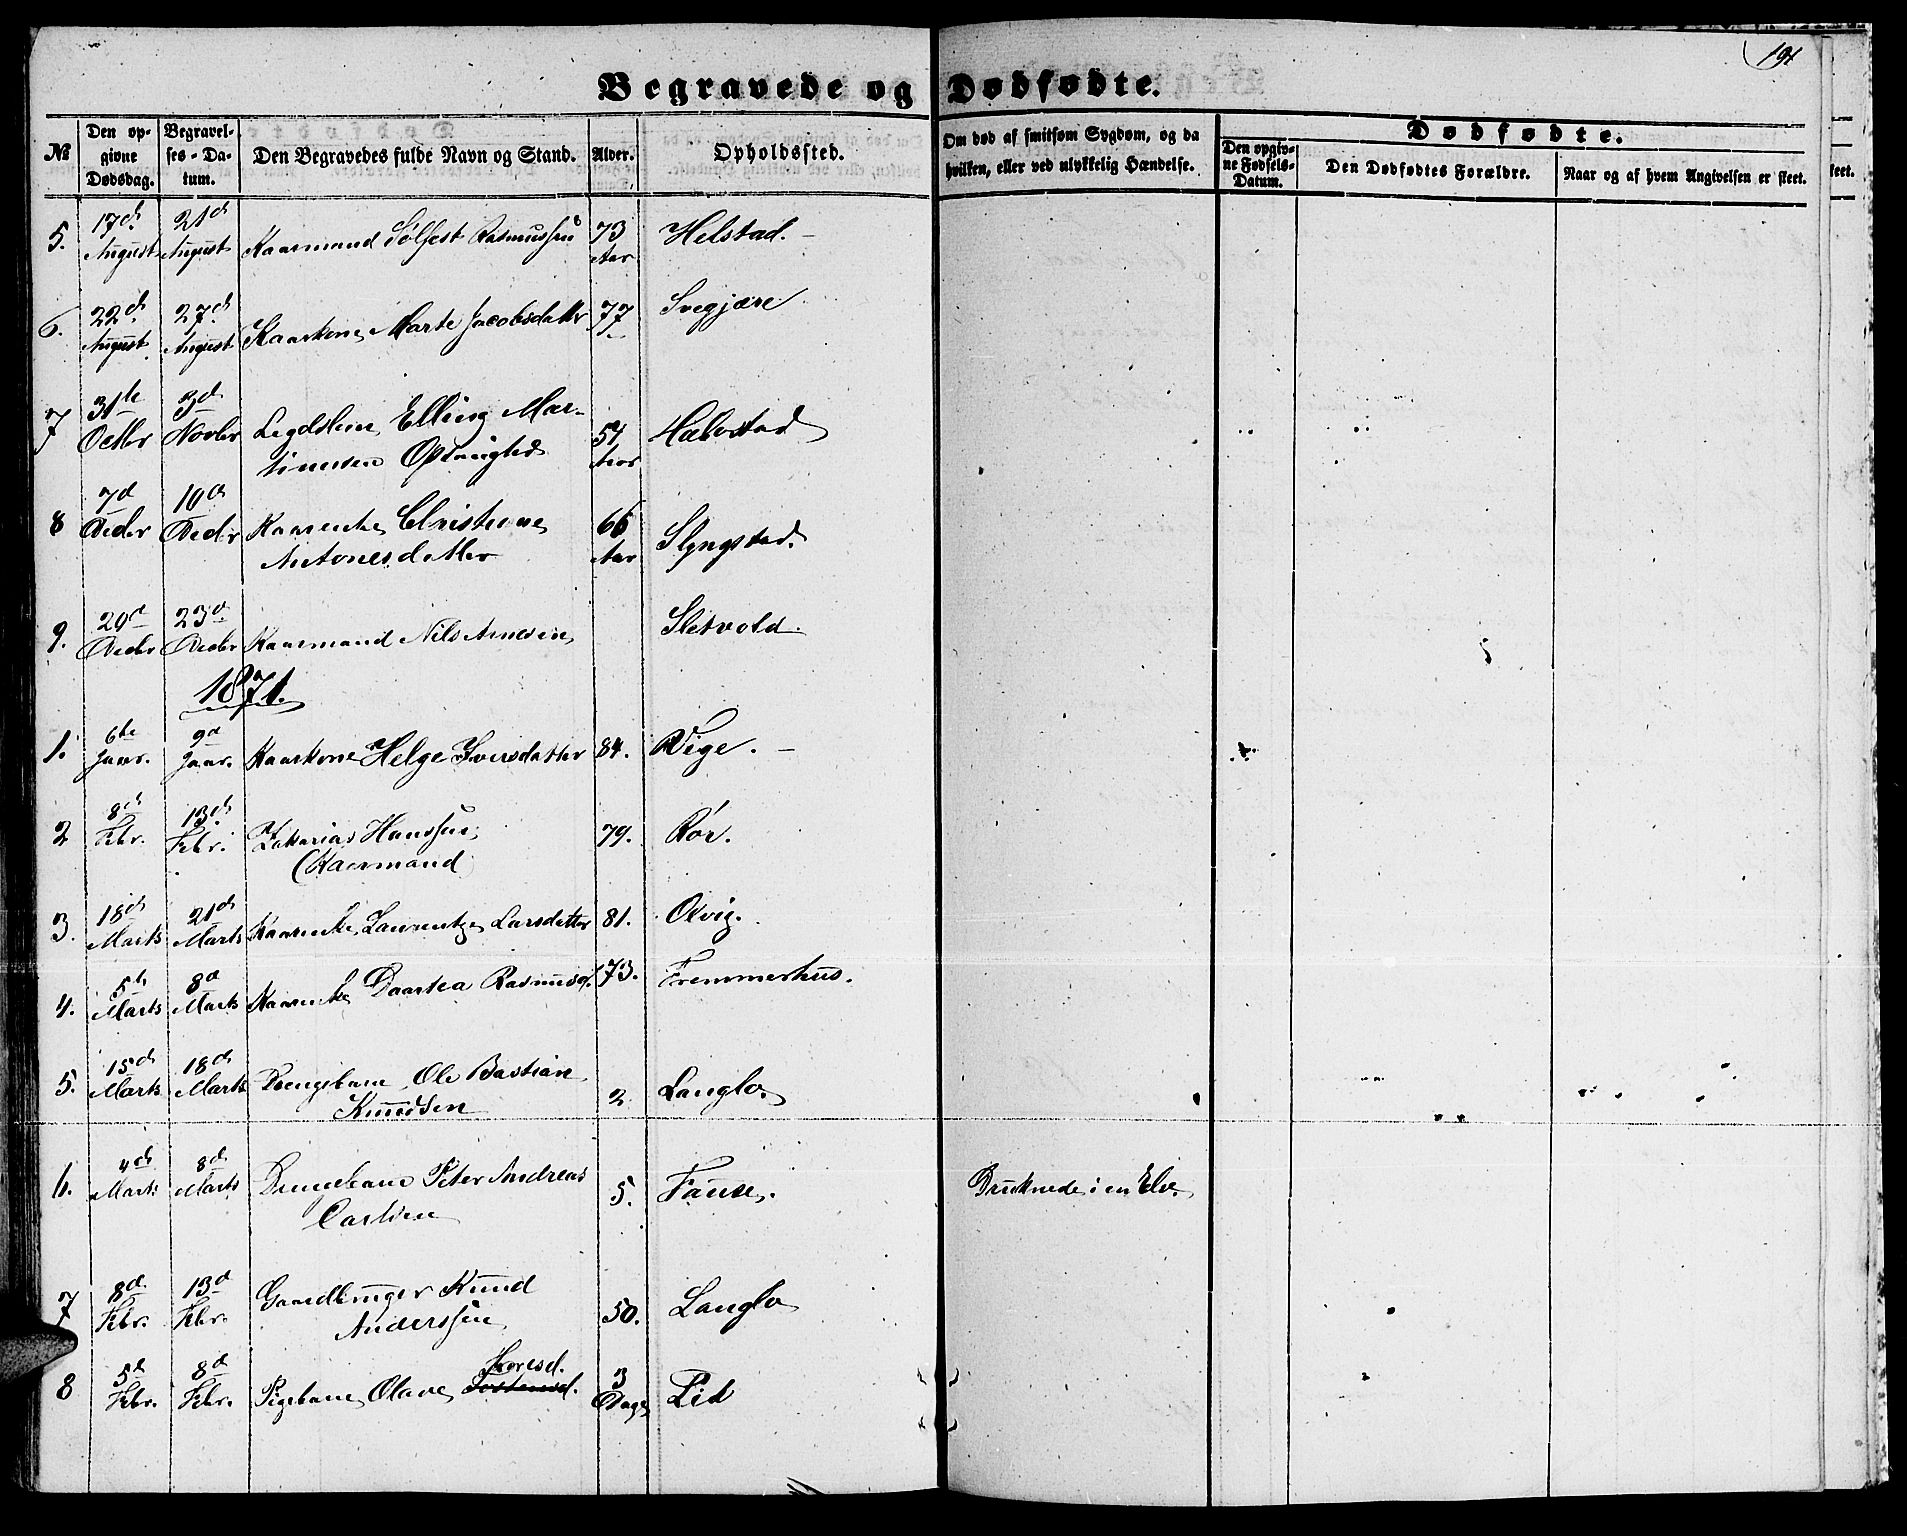 191
Begravede og Dødfødte.
№
Den opgivne Dødsdag.
Begravelses-Datum.
Den Begravedes fulde Navn og Stand.
Alder.
Opholdssted.
Om død af smitsom Sygdom, og da hvilken, eller ved ulykkelig Hændelse.
Dødfødte.
Den opgivne Fødsels-Datum.
Den Dødfødtes Forældre.
Naar og af hvem Angivelsen er skeet.
5. 17de August 21de August Kaarmand Sølfest Rasmussen 73 Aar Helstad. –
6. 22de August 27de August Kaarkone Marte Jacobsdatter 77 Svegjære
7 31te Octbr 3d Novbr Legdslem Elling Mar-
tinussen 54 Aar Halvstad
8 7d Decbr 10d Decbr Kaarenke Christiane
Antonesdatter 66 Aar Slyngstad.
9. 20d Decbr 23d Decbr Kaarmand Nils Arnesen Sletvold.
1871.
1. 6te Jaar. 9d Jaar. Kaarkone Helge Iversdatter 84. Vige. –
2 8de Febr. 13de Febr. Zakarias Hanssen
(Kaarmand 79. Rör.
3. 18de Marts 21de Marts Kaarenke Laurentze Larsdatter 81. Oxvig.
4. 5te Marts 8d Marts Kaarenke Daartea Rasmusd. 73. Fremmerhus.
5. 15de Marts 18de Marts Drengebarn Ole Bastian
Knudsen 2 Langlo.
6. 4de Marts 8de Marts Drengebarn Peter Andreas
Carlsen 5. Fause. Druknede i en Elv.
7 8d Febr. 13d Febr. Gaardbruger Knud
Anderssen 50. Langlo
Toresd.
8 5d Febr. 8d Febr. Pigebarn Olave Tostensd. 3 Dage Lid